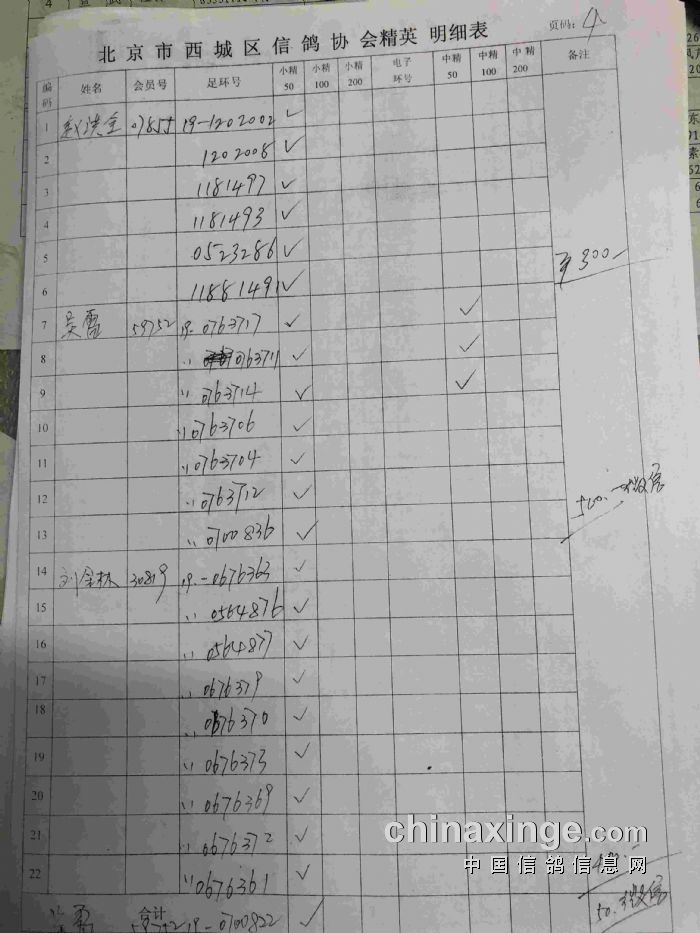 北京市西城区信鸽协会精英 明细表
页码: 4
编码 姓名 会员号 足环号 小精50 小精100 小精200 电子环号 中精50 中精100 中精200 备注
1 07855 19-1202002 ✓
2 1202008 ✓
3 1181497 ✓
4 1181493 ✓
5 0523286 ✓
6 11881491 ✓ ¥300-
7 吴雷 59752 19-0763717 ✓ ✓
8 〃 0763711 ✓ ✓
9 〃 0763714 ✓ ✓
10 〃 0763706 ✓
11 〃 0763704 ✓
12 〃 0763712 ✓ 500.-微信
13 〃 0700836 ✓
14 刘金林 30819 19.-0676363 ✓
15 〃 0564876 ✓
16 〃 0564877 ✓
17 〃 0676379 ✓
18 〃 0676370 ✓
19 〃 0676373 ✓
20 〃 0676369 ✓
21 〃 0676372 ✓
22 〃 0676361 ✓
合计
吴雷 59752 19-0700822 ✓ 50.微信
chinaxinge.com
中国信鸽信息网